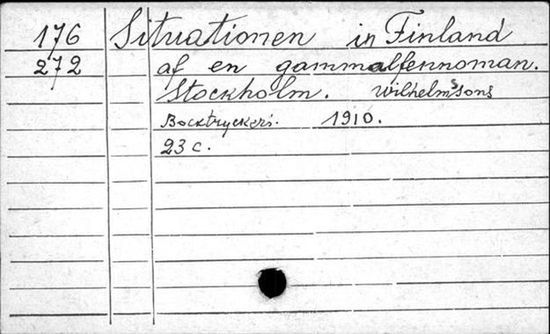 176 Situationen in Finland
272 af en gammalfennoman.
Stockholm. Wilhelmsons
Bocktryckeri. 1910.
23 c.